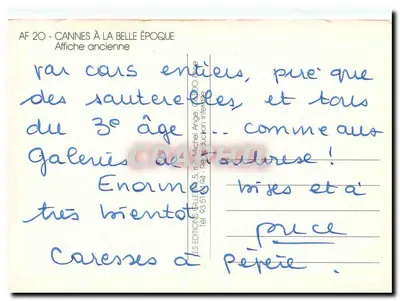 AF 20 - CANNES À LA BELLE ÉPOQUE
Affiche ancienne
par cars entiers, pire que
des sauterelles, et tous
du 3e âge ... comme aux
Galeries de Toulouse !
Enormes bises et à
très bientôt
puce
Caresses à Pépère.
LES EDITIONS GILLETTA, 5, rue Michel Ange, Nice
Tél 93 51 94 - Reproduction interdite